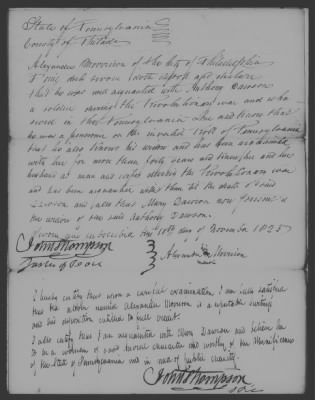 State of Pennsylvania
County of Philada
Alexander Morrison of the City of Philadelphia
on his oath sworn doth depose and declare
that he was well acquainted with Anthony Dawson
a soldier during the Revolutionary war and who
served in the Pennsylvania Line and knows that
he was a pensioner on the invalid roll of Pennsylvania
that he also knows his widow and has been acquainted
with her for more than forty years and knew her and her
husband as man and wife after the Revolutionary war
and has been acquainted with them till the death of said
Dawson and further that Mary Dawson now present is
the widow of the said Anthony Dawson.
Sworn and subscribed this 18th day of November 1825
John Thompson
Justice of Peace
Alexander Morrison
I hereby certify that upon a careful examination I am fully satisfied
that the above named Alexander Morrison is a reputable
and his deposition entitled to full credit.
I also certify that I am acquainted with Mary Dawson and believe her
to be a woman of good moral character and worthy of the Munificence
of the State of Pennsylvania and in need of public charity.
John Thompson